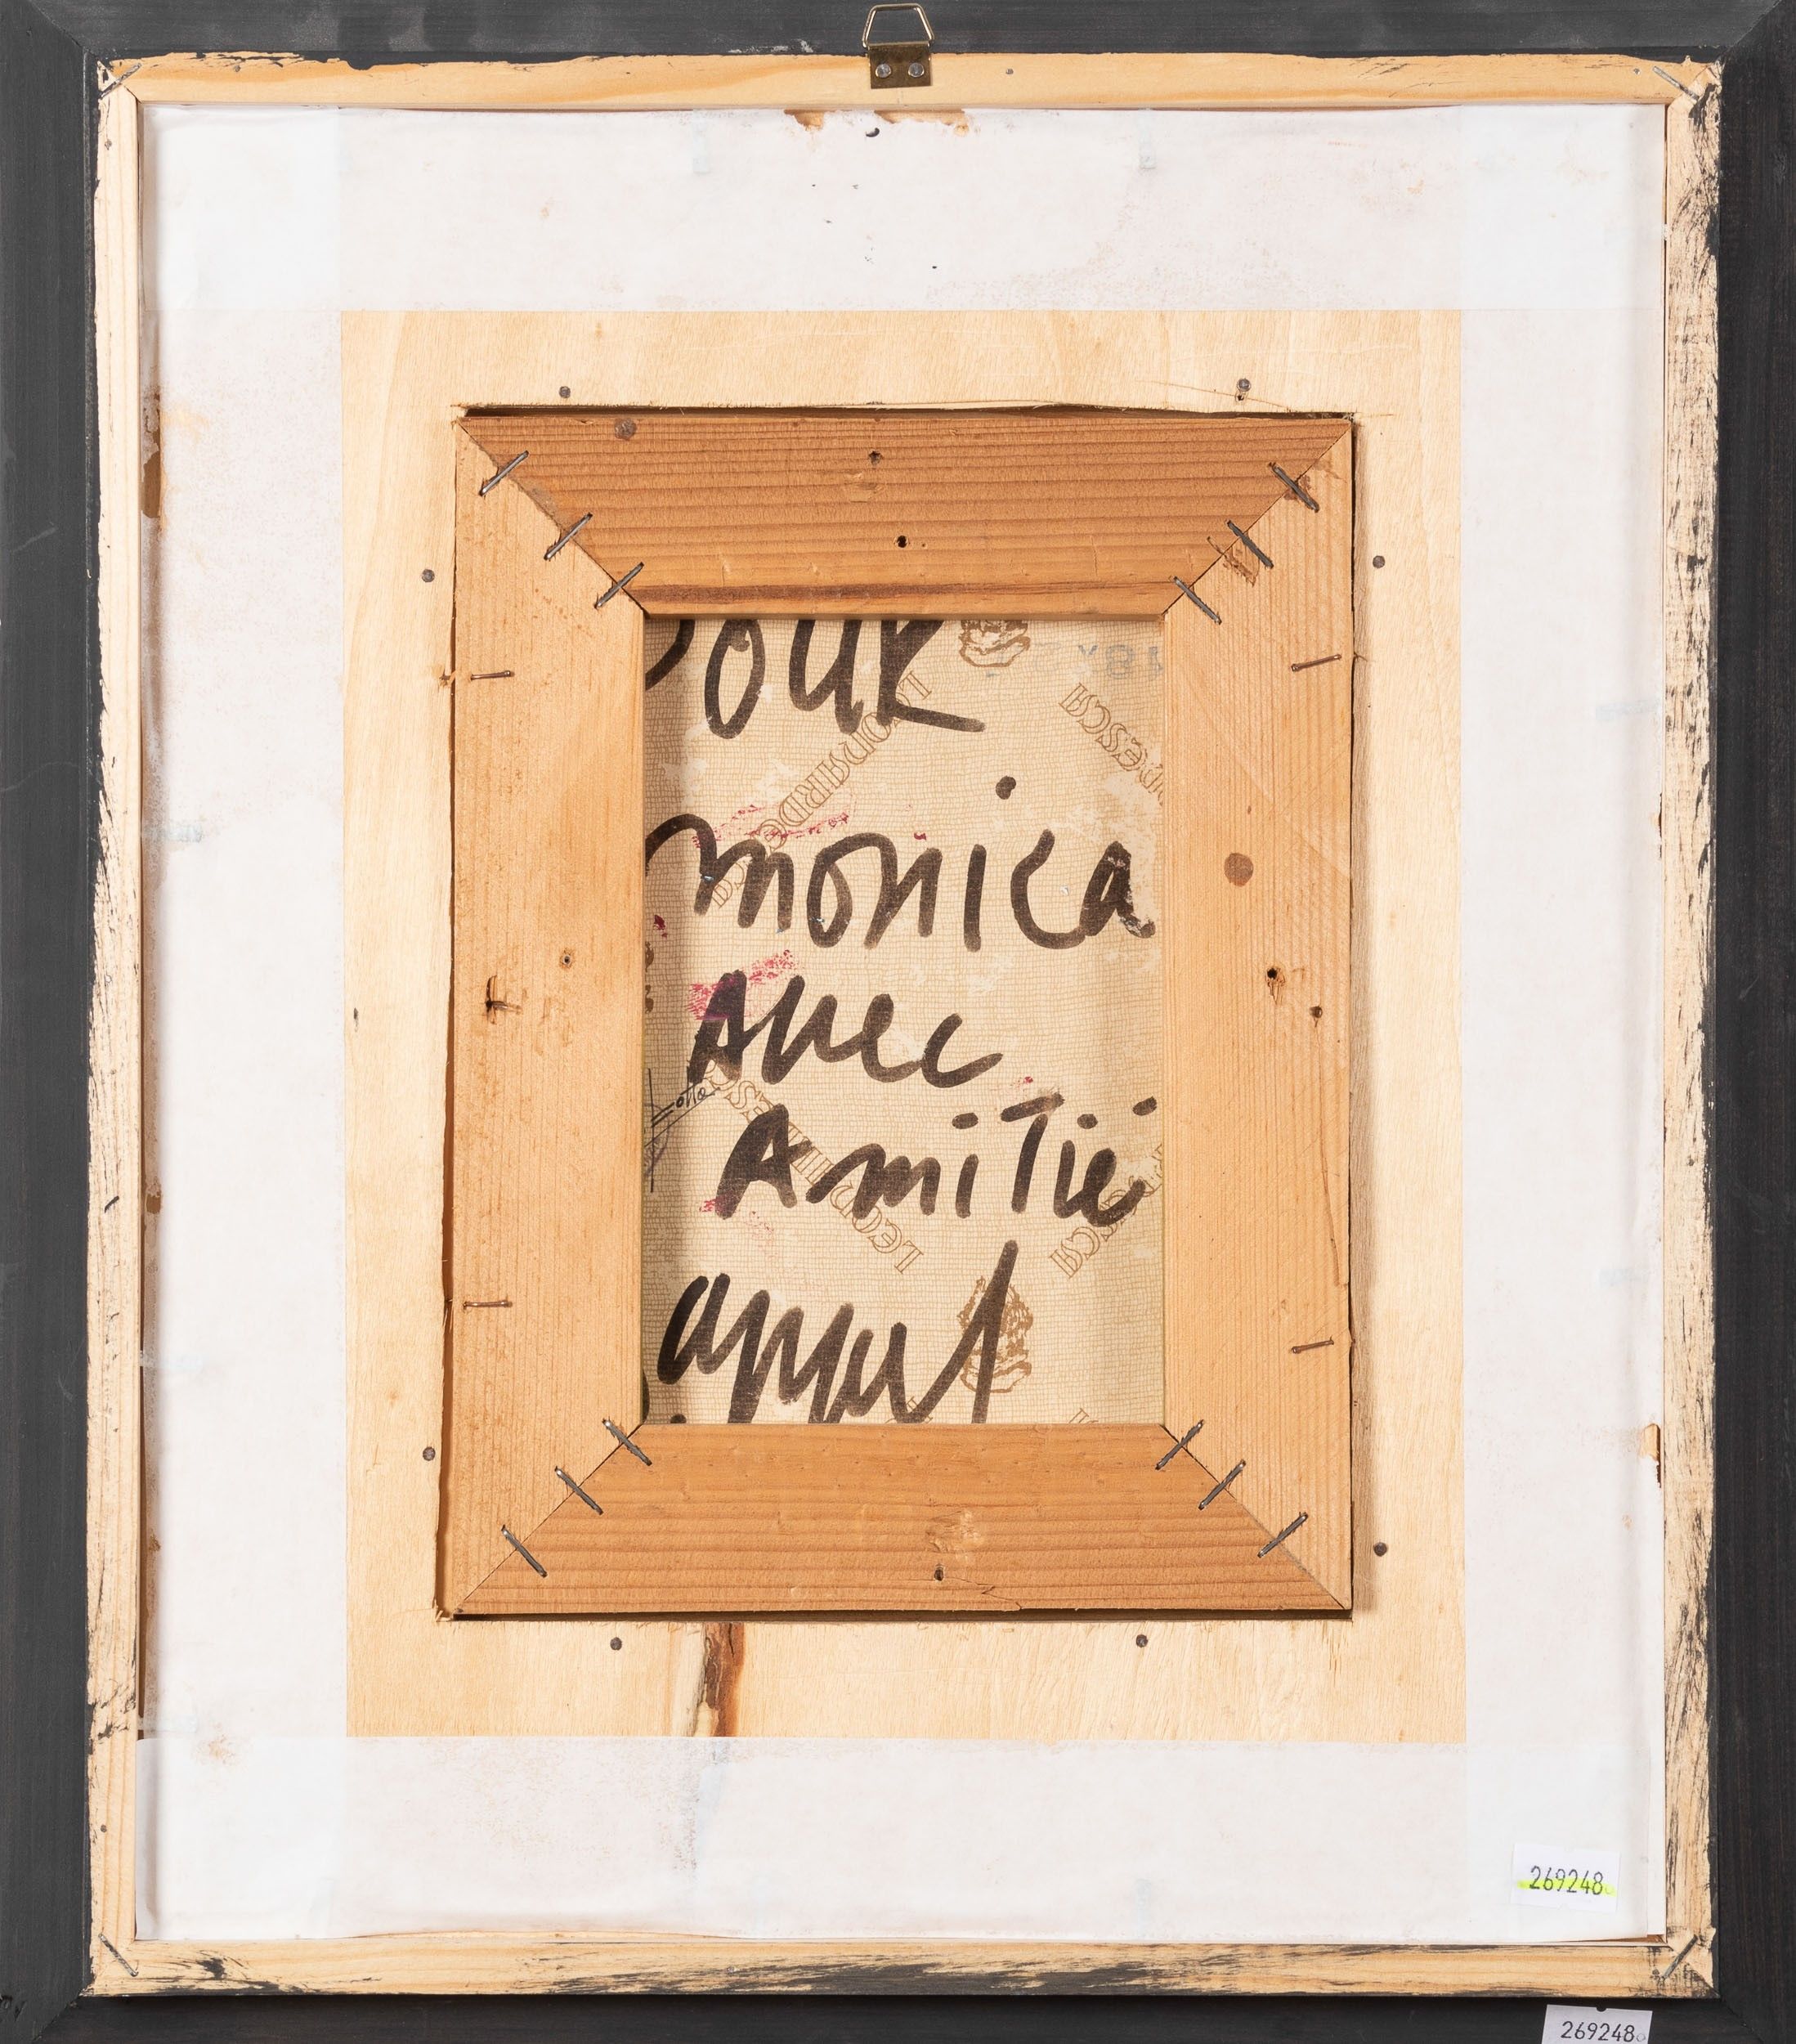 Pour
monica
Avec
AmiTié
appel
18x2
LEONARDESSCA
269248
269248